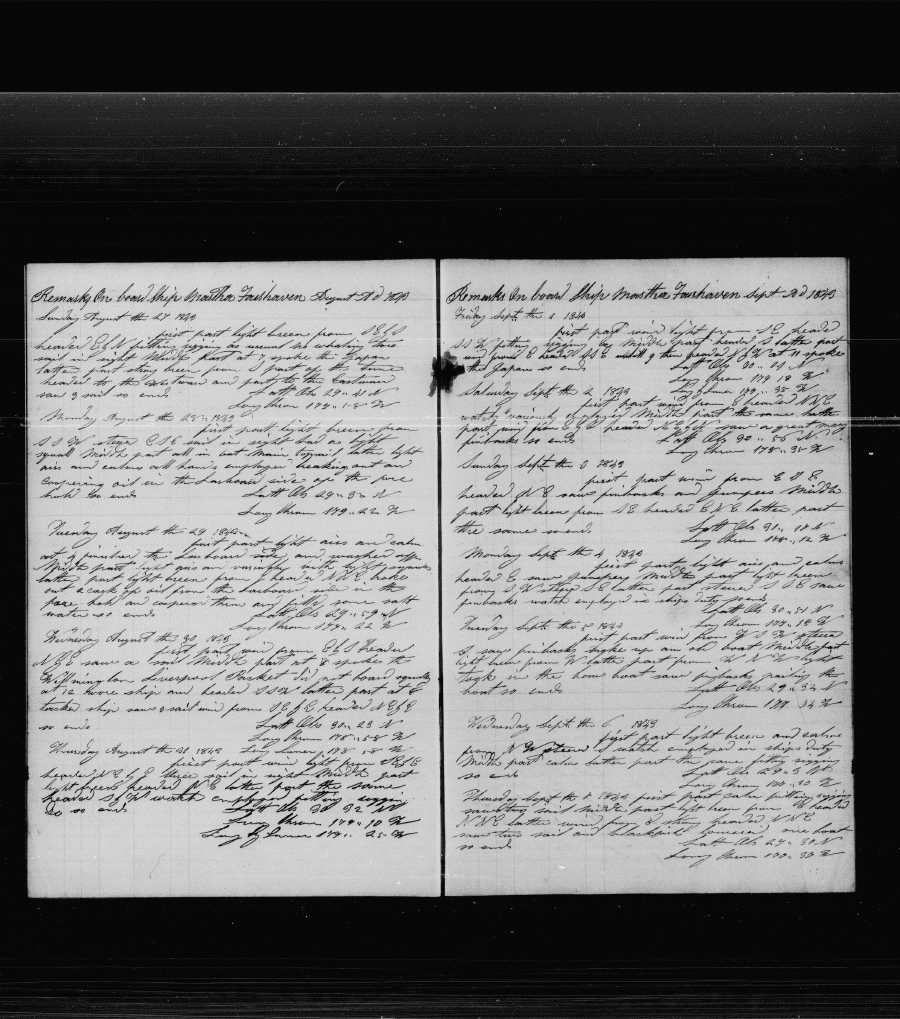 Remarks On board Ship Martha Fairhaven August AD 1843
Sunday August the 27 1843
first part light breen from SE & S
headed E & N fitting riging as usual no whaling two
sail in sight Middle part at 7 spoke the Japan
latter part strong breen from S part of the time
headed to the Westward and part to the Eastward
saw 3 sail so ends Latt Obs 29 41 N
Long Chrom 179 W
Monday August the 28 1843
first part light breen from
SSW steered ESE sail in sight had a light
squall Middle part all in but Main Topsail latter light
airs and calms all hands employed breaking out and
coopering oil in the Larboard side of the fore
hole So ends Latt Obs 29 32 N
Long Chrom 179 22 W
Tuesday August the 29 1843
first part light airs and calm
and finished the Larboard side and washed off
Middle part light airs and variable with light squalls
latter part light breen from headed NNE broke
out a cask of oil from the larboard side in the
fore hole and coopered them and fill some salt
water so ends Latt Obs 29 59 N
Long Chrom 179 22 W
Wednesday August the 30 1843
first part wind from E & S headed
N & E saw a sail Middle part at 8 spoke the
Willmington Liverpool Packet did not board
at 12 wore ship and headed SSW latter part at 6
tacked ship saw 3 sail wind from SE & E headed NE & E
so ends Latt Obs 30 23 N
Long Chrom 178 58 W
Thursday August the 31 1843 Long Lunar 178 58 W
first part wind light from
headed NE & E three sail in sight Middle part
light breen headed NE latter part the same
headed S & W watch employed fitting riging
So so ends Latt Obs 30 32 N
Long Chrom 179 10 W
Long By Lunar 179 25 W
Remarks On board Ship Martha Fairhaven Sept AD 1843
Friday Sept the 1 1843
first part wind light from SE headed
SSW fitting riging by Middle part headed S latter part
wind from E headed SSE until 9 then headed N & W at 11 spoke
the Japan so ends Latt Obs 30 N
Long Chrom 179 18 W
Saturday Sept the 2 1843 Long Lunar 179 35 W
first part wind from E headed NNE
watch variously employed Middle part the same latter
part wind from E & N headed N & W saw a great many
finbacks so ends Latt Obs 30 55 N
Long Chrom 178 35 W
Sunday Sept the 3 1843
first part wind from ESE
headed NE saw finbacks and jumpers Middle
part light breen from SE headed ENE latter part
the same so ends Latt Obs 31 18 N
Long Chrom 178 12 W
Monday Sept the 4 1843
first part light airs and calms
headed E saw jumpers Middle part light breen
from SW steered SE latter part steered SE saw
finbacks watch employed in ships duty so ends
Latt Obs 30 51 N
Tuesday Sept the 5 1843 Long Chrom 177 18 W
first part wind from WSW steered
S saw finbacks broke up an old boat Middle part
light breen from W latter part from WNW light
took in the bow boat saw finbacks
boat so ends Latt Obs 29 32 N
Long Chrom 177 34 W
Wednesday Sept the 6 1843
first part light breen and calms
from NW steered S watch employed in ships duty
Middle part calm latter part the same fitting riging
so ends Latt Obs 29 N
Long Chrom W
Thursday Sept the 7 1843 first part calm fitting riging
something sail Middle part light breen from headed
NNE latter wind from E steady headed NNE
saw two sail and blackfish lowered one boat
so ends Latt Obs 29 30 N
Long Chrom 30 W